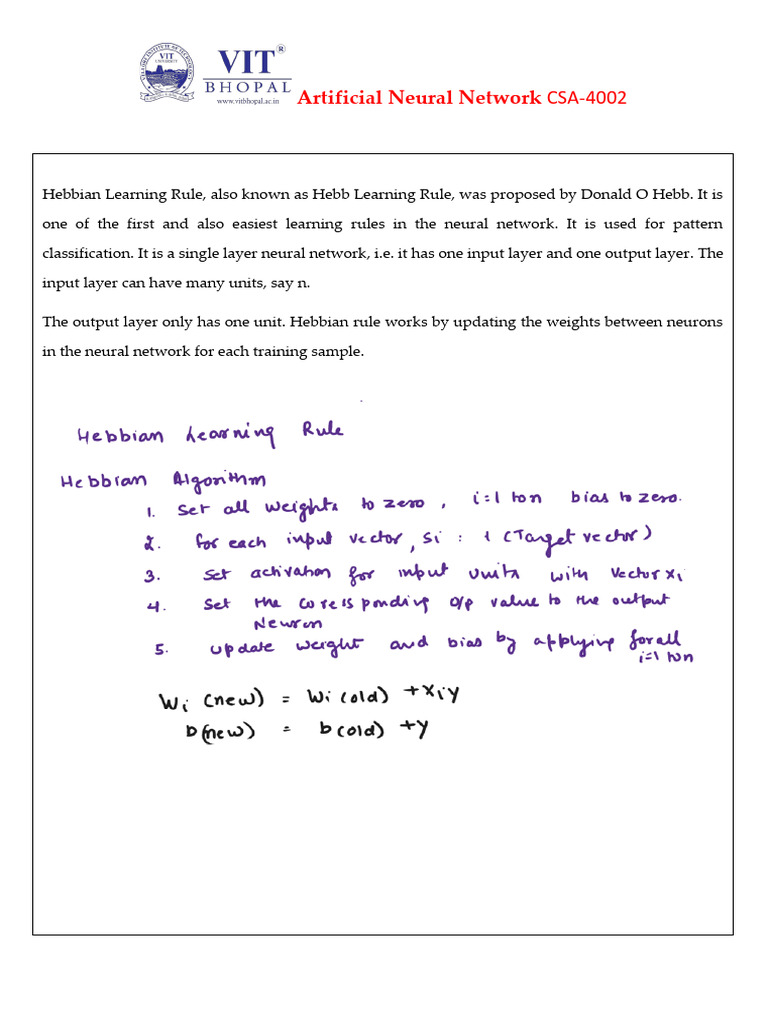 VIT
UNIVERSITY
VIT®
BHOPAL
www.vitbhopal.ac.in
Artificial Neural Network CSA-4002
Hebbian Learning Rule, also known as Hebb Learning Rule, was proposed by Donald O Hebb. It is
one of the first and also easiest learning rules in the neural network. It is used for pattern
classification. It is a single layer neural network, i.e. it has one input layer and one output layer. The
input layer can have many units, say n.
The output layer only has one unit. Hebbian rule works by updating the weights between neurons
in the neural network for each training sample.
Hebbian Learning Rule
Hebbian Algorithm
1. Set all weights to zero, i=1 to n bias to zero.
2. for each input vector, Si : t (Target vector)
3. Set activation for input units with vector xi
4. Set the corresponding o/p value to the output
Neuron
5. update weight and bias by applying for all
i=1 to n
Wi (new) = Wi (old) + xi y
b(new) = b(old) + y